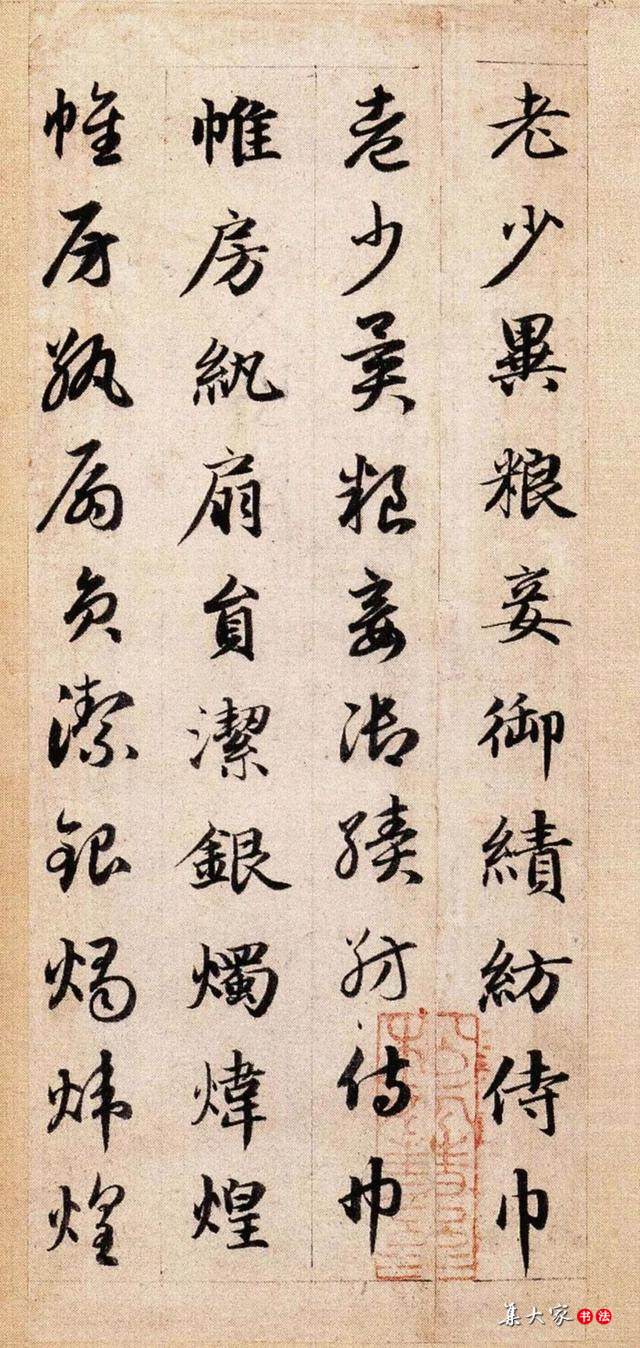 老少異粮妾御績紡侍巾
老少異粮妾御績紡侍巾
帷房紈扇員潔銀燭煒煌
帷房紈扇員潔銀燭煒煌
集大家书法